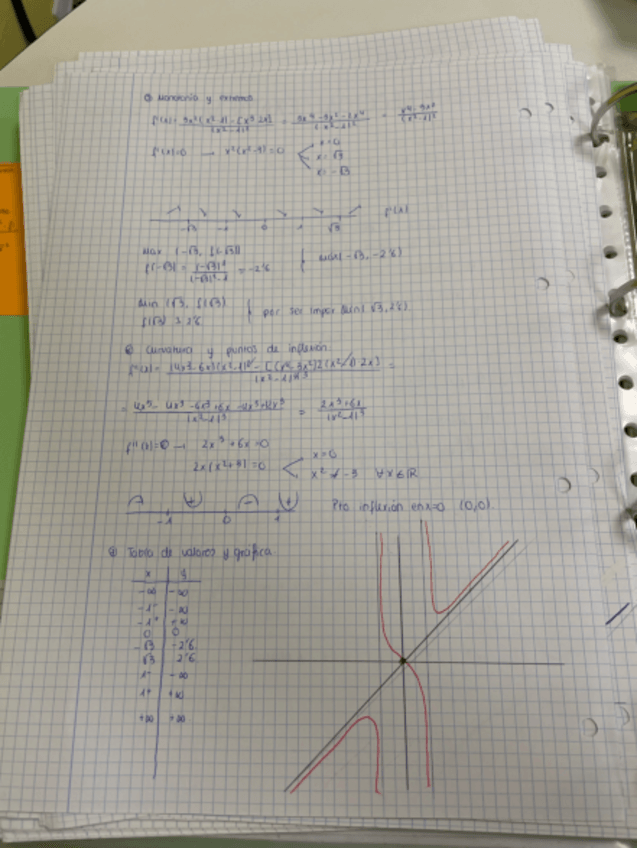 ① Monotonía y extremos
f'(x) = 3x²(x²-1) - [x³·2x] / (x²-1)² = 3x⁴-3x²-2x⁴ / (x²-1)² = x⁴-3x² / (x²-1)²
f'(x)=0 → x²(x²-3)=0
x=0
x=√3
x=-√3
-√3 -1 0 1 √3 f'(x)
Max (-√3, f(-√3))
f(-√3) = (-√3)³ / (-√3)²-1 = -2'6 Max(-√3, -2'6)
Min (√3, f(√3))
f(√3) = 2'6 por ser impar Min(√3, 2'6)
Curvatura y puntos de inflexión
= 2x³+6x / (x²-1)³
f''(x)=0 → 2x³+6x=0
2x(x²+3)=0
x=0
x² ≠ -3 ∀x∈ℝ
-1 0 1 Pto inflexión en x=0 (0,0)
Tabla de valores y gráfica
x y
-∞ -∞
-1⁻ -∞
-1⁺ +∞
0 0
-√3 -2'6
√3 2'6
1⁻ -∞
1⁺ +∞
+∞ +∞